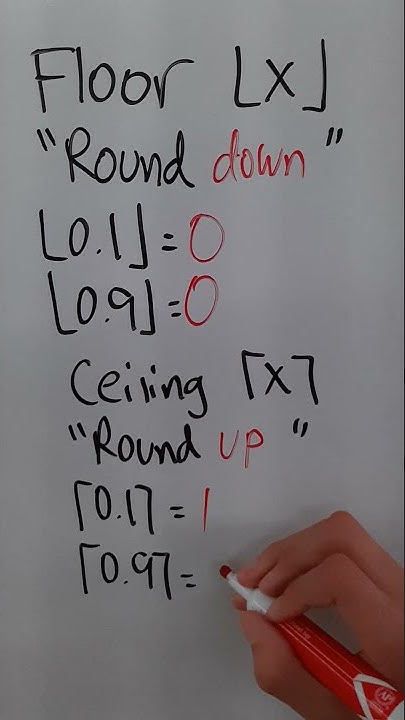 Floor ⌊x⌋
"Round down"
⌊0.1⌋ = 0
⌊0.9⌋ = 0
Ceiling ⌈x⌉
"Round up"
⌈0.1⌉ = 1
⌈0.9⌉ =